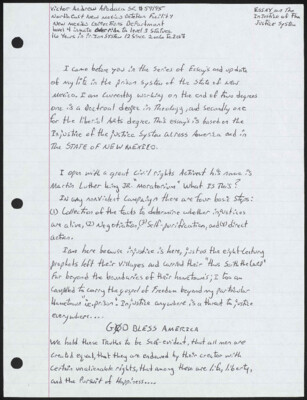 Victor Andrew Apodaca Sr. #39195
Northeast New Mexico Detention Facility
New Mexico Corrections Department
Level 4 inmate to level 3 Status
Essay on The
Injustice of the
Justice System
I come before you in the Series of Essays and update
of my life in the prison system of the State of New
Mexico. I am currently working on the end of two degrees
one is a doctoral degree in Theology, and secondly one
for the liberal Arts degree. This essay is based on the
Injustice of the Justice System across America and in
The STATE OF NEW MEXICO.
I open with a great Civil right Activist his name is
Martin Luther King JR. "Moratorium" What Is This?
In any nonviolent Campaign there are four basic steps:
(1) Collection of the facts to determine whether injustices
are alive, (2) Negotiation, (3) Self-purification, and (4) direct
action.
I am here because injustice is here, just as the eighth century
prophets left their villages and carried their "thus Saith the Lord"
far beyond the boundaries of their hometowns; I too am
compelled to carry the gospel of freedom beyond my particular
Hometown "i.e. prison". Injustice anywhere is a threat to justice
everywhere....
GOD BLESS AMERICA
We hold these truths to be Self-evident, that all men are
created equal, that they are endowed by their creator with
certain unalienable rights, that among these are life, liberty,
and the Pursuit of Happiness....